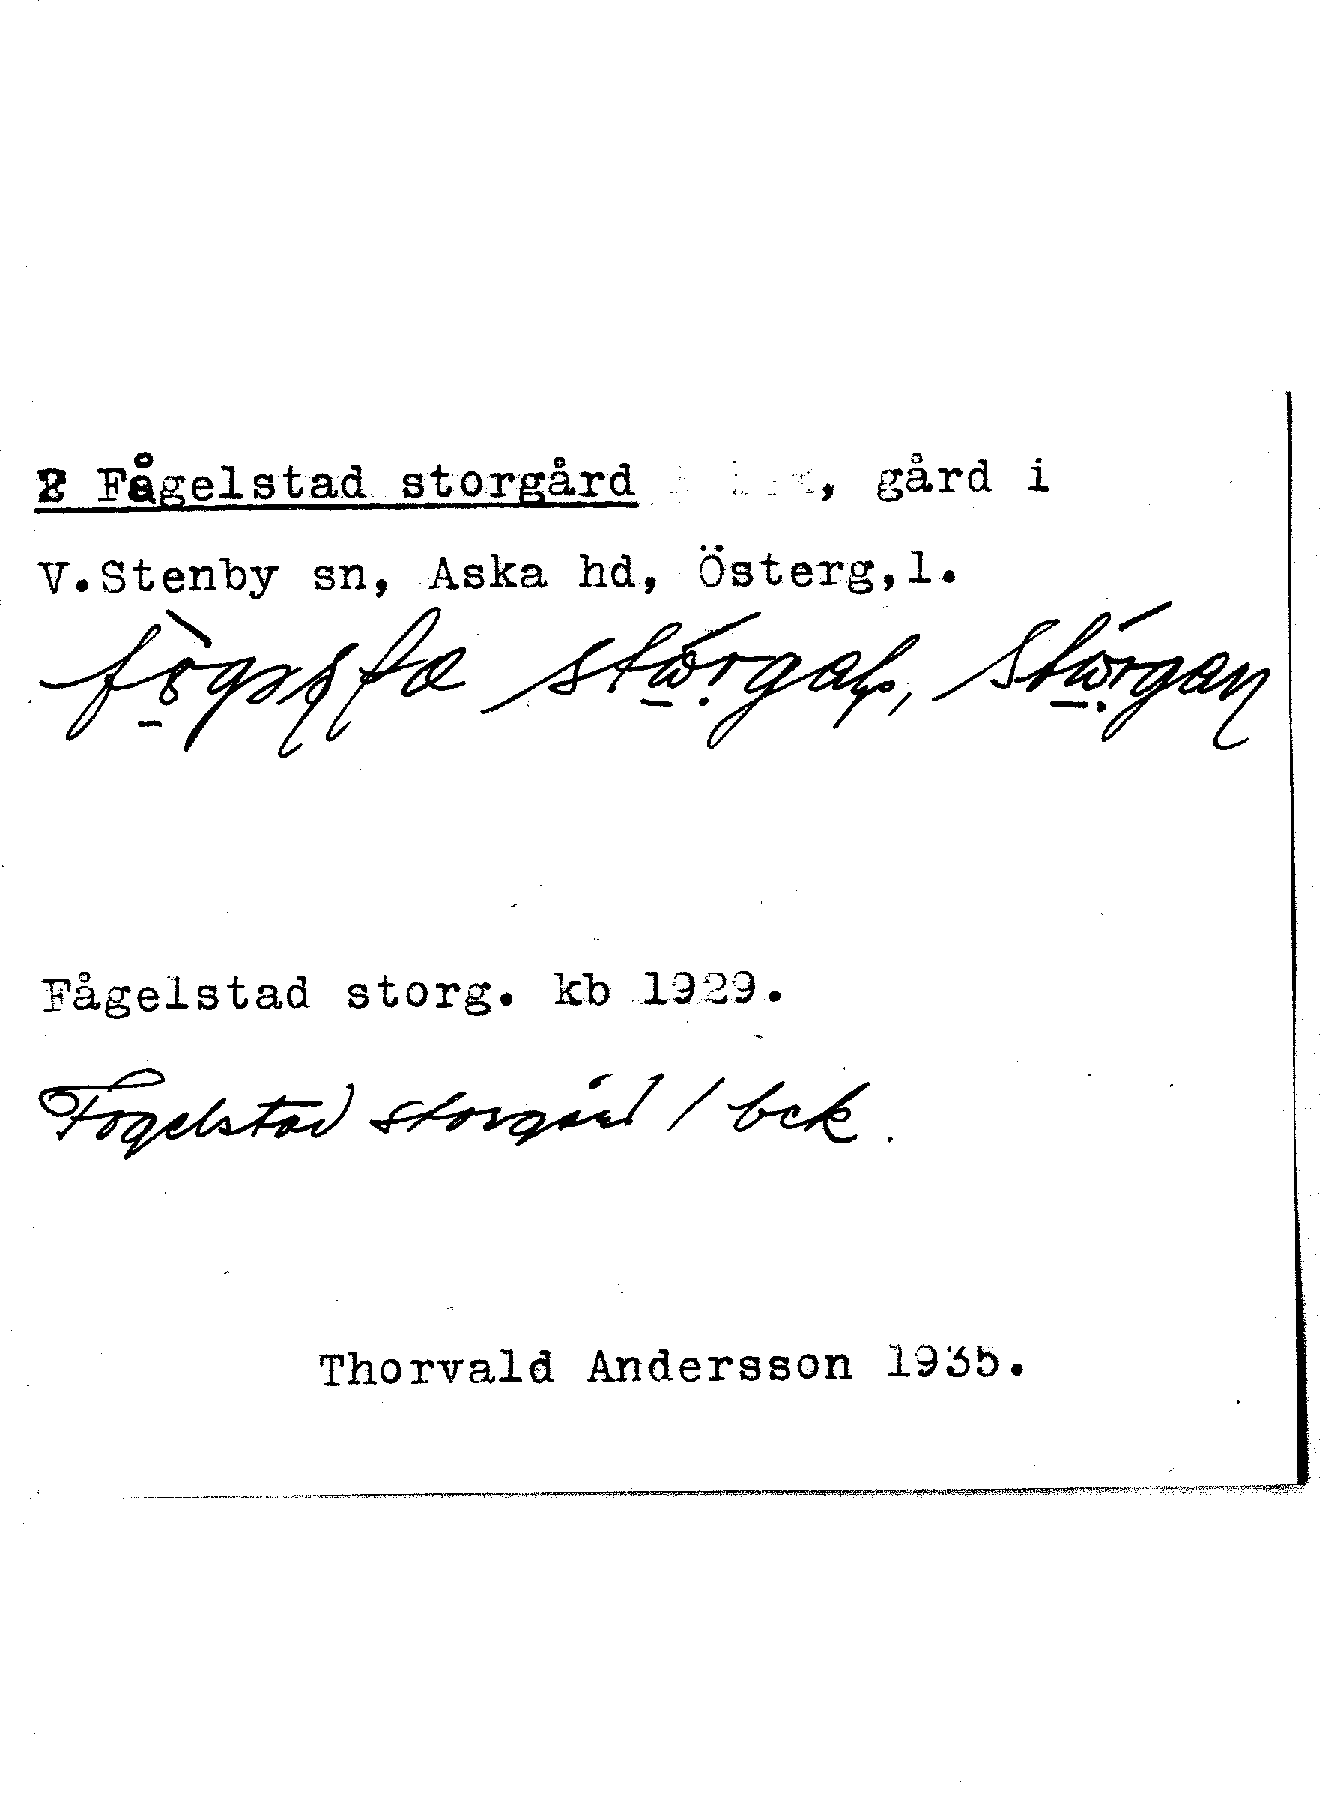 2 Fågelstad storgård , gård i
V.Stenby sn, Aska hd, Österg,l.
Fågelstad storg. kb 1929.
Fogelstad storgård / bck.
Thorvald Andersson 1935.